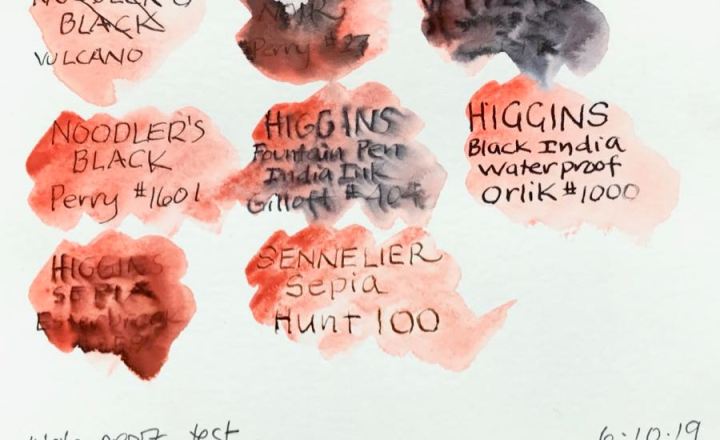 NOODLER'S
BLACK
VULCANO
NOIR
Perry #27
NOODLER'S
BLACK
Perry #1601
HIGGINS
Fountain Pen
India Ink
Gillott #404
HIGGINS
Black India
Waterproof
Orlik #1000
HIGGINS
SEPIA
SENNELIER
Sepia
Hunt 100
test
6.10.19